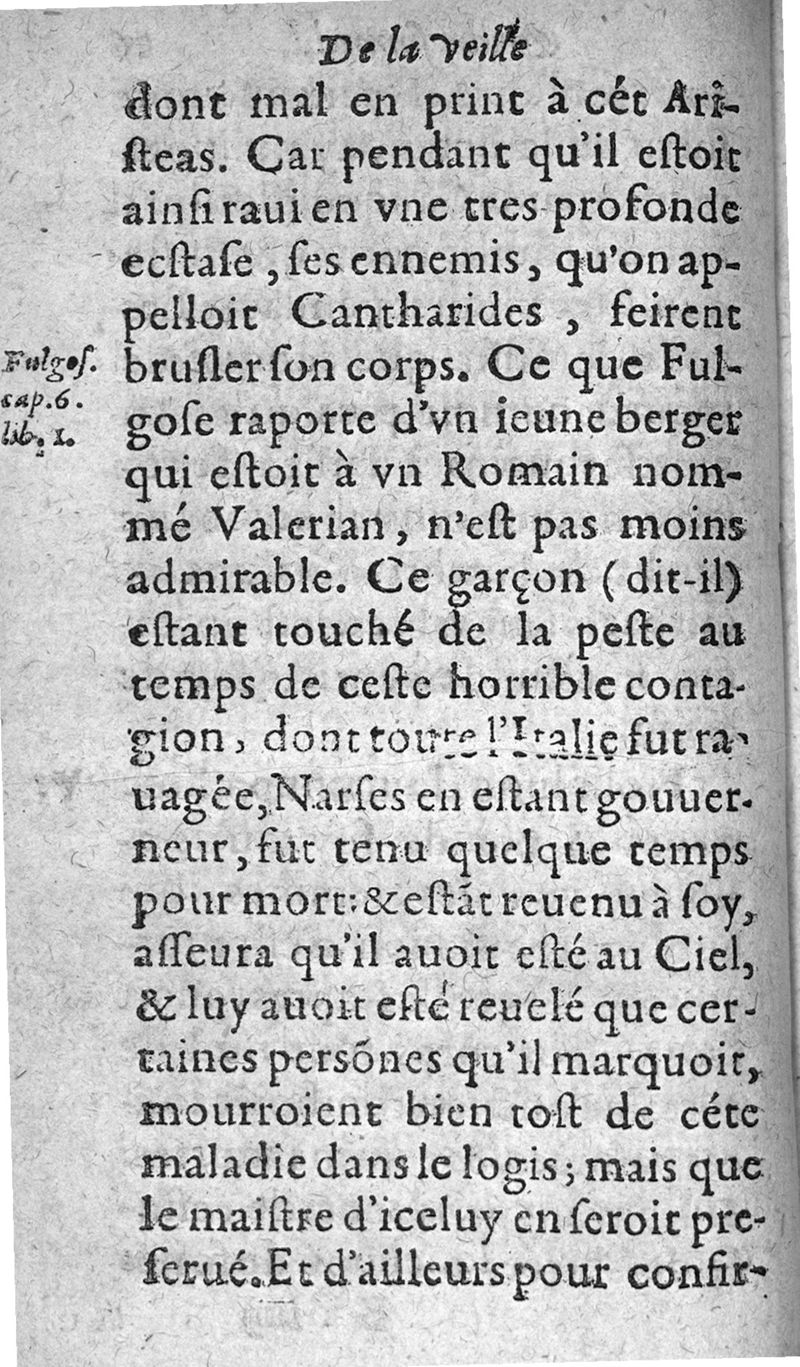 De la veille
dont mal en print à cét Ari-
ſteas. Car pendant qu'il eſtoit
ainſi raui en vne tres profonde
ecſtaſe, ſes ennemis, qu'on ap-
pelloit Cantharides, feirent
Fulgoſ.
cap. 6.
lib. 1.
bruſler ſon corps. Ce que Ful-
goſe raporte d'vn ieune berger
qui eſtoit à vn Romain nom-
mé Valerian, n'eſt pas moins
admirable. Ce garçon (dit-il)
eſtant touché de la peſte au
temps de ceſte horrible conta-
gion, dont toute l'Italie fut ra-
uagée, Narſes en eſtant gouuer-
neur, fut tenu quelque temps
pour mort: & eſtãt reuenu à ſoy,
aſſeura qu'il auoit eſté au Ciel,
& luy auoit eſté reuelé que cer-
taines persõnes qu'il marquoit,
mourroient bien toſt de céte
maladie dans le logis; mais que
le maiſtre d'iceluy en ſeroit pre-
ſerué. Et d'ailleurs pour confir-